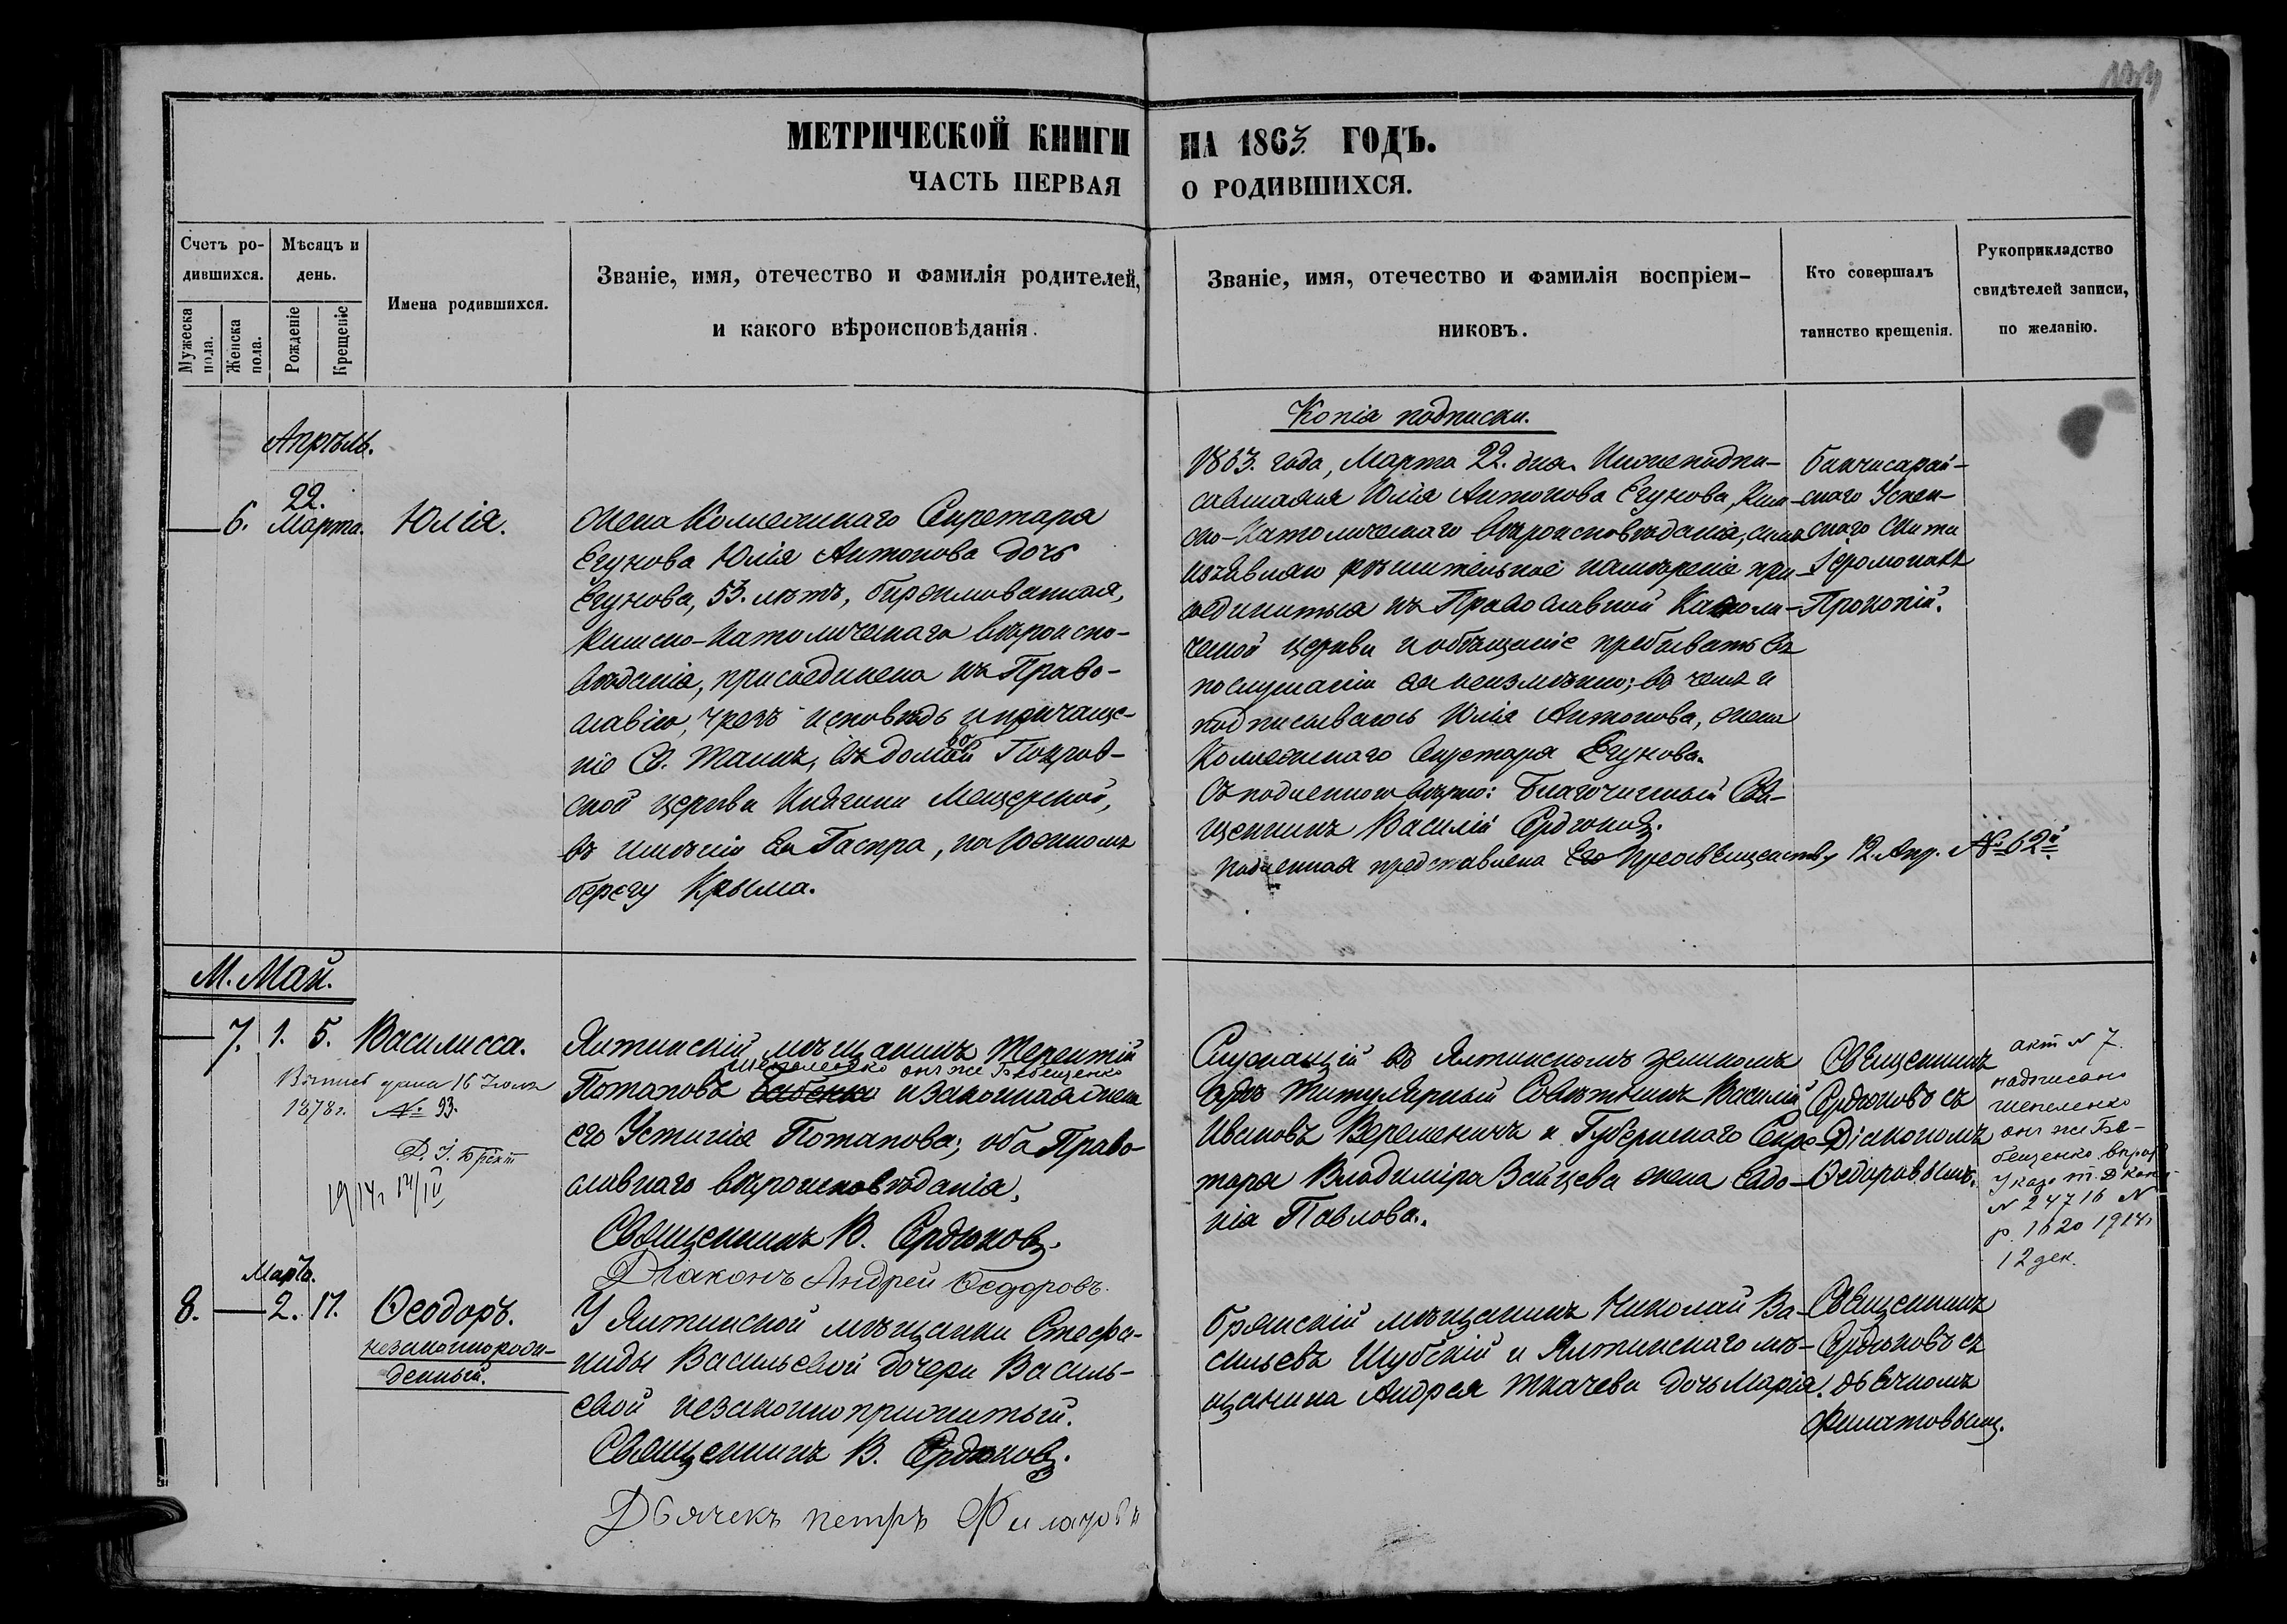 МЕТРИЧЕСКОЙ КНИГИ НА 1863 ГОДЪ.
ЧАСТЬ ПЕРВАЯ О РОДИВШИХСЯ.
Счетъ ро-
дившихся.
Мужеска пола.
Женска пола.
Мѣсяцъ и
день.
Рожденіе
Крещеніе
Имена родившихся.
Званіе, имя, отечество и фамилія родителей,
и какого вѣроисповѣданія.
Званіе, имя, отечество и фамилія воспріем-
никовъ.
Кто совершалъ
таинство крещенія.
Рукоприкладство
свидѣтелей записи,
по желанію.
Апрѣль.
6. 22. Марта. Юлія.
Жена Коллежскаго Секретаря
Егунова Юлія Антонова дочь
Егунова, 53. лѣтъ,
Римско-Католическаго вѣроиспо-
вѣданія, присоединена къ Право-
славію, чрезъ исповѣдь и причаще-
ніе Св. Таинъ, въ домовой Покров-
ской церкви Княгини Мещерской,
въ имѣніи Ея Гаспра, на Южномъ
берегу Крыма.
Копія подписки.
1863. года, Марта 22. дня. Нижеподпи-
савшаяся Юлія Антонова Егунова, Рим-
ско-Католическаго вѣроисповѣданія, симъ
изъявляю рѣшительное намѣреніе при-
соединиться къ Православной Каѳоли-
ческой церкви и обѣщаніе пребывать въ
послушаніи ея неизмѣнно; въ чемъ и
подписываюсь Юлія Антонова, жена
Коллежскаго Секретаря Егунова.
Съ подлинною вѣрно: Благочинный Свя-
щенникъ Василій Сердюковъ.
Подлинная представлена Его Преосвященству 12. Апр. № 62й
Бахчисарай-
скаго Успен-
скаго Скита
Іеромонахъ
Прокопій.
М. Май.
7. 1. 5. Василисса.
16 Іюля
1878 г. № 93.
1914 г 14/IV
Ялтинскій мѣщанинъ Терентій
Шепеленко онъ же Бабещенко
Потаповъ и законная жена
его Устинія Потапова; оба Право-
славнаго вѣроисповѣданія.
Священникъ В. Сердюковъ.
Діаконъ Андрей Ѳедоровъ.
Служащій въ Ялтинскомъ земскомъ
Судѣ Титулярный Совѣтникъ Василій
Ивановъ Веременичъ и Губернскаго Секре-
таря Владиміра Зайцева жена Евдо-
кія Павлова.
Священникъ
Сердюковъ съ
Діакономъ
Ѳедоровымъ.
акт № 7
надписано
Шепеленко
онъ же Ба-
бещенко
Указ Т. Д. Конс
№ 24716
р. 1620 1914 г
12 дек.
Мартъ.
8. 2. 17. Ѳеодоръ.
незаконнорож-
денный.
У Ялтинской мѣщанки Стефа-
ниды Васильевой дочери Василь-
евой незаконноприжитый.
Священникъ В. Сердюковъ.
Дьячекъ петръ Филатовъ
Брянскій мѣщанинъ Николай Ва-
сильевъ Шубскій и Ялтинскаго мѣ-
щанина Андрея Ткачева дочь Марія.
Священникъ
Сердюковъ съ
дьячкомъ
Филатовымъ.